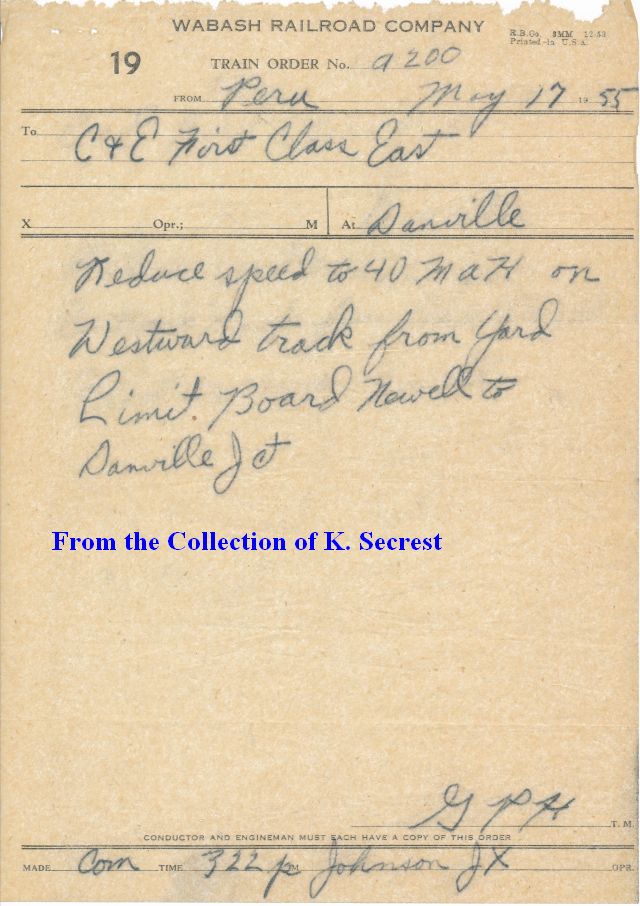 WABASH RAILROAD COMPANY
R.B.Co. 3MM 12-53
Printed in U.S.A.
19 TRAIN ORDER No. a 200
FROM Peru May 17 1955
To C & E First Class East
X Opr.; M At Danville
Reduce speed to 40 M a H on
Westward track from Yard
Limit. Board Newell to
Danville Jct
From the Collection of K. Secrest
G P H T. M.
CONDUCTOR AND ENGINEMAN MUST EACH HAVE A COPY OF THIS ORDER
MADE Com TIME 322 p M Johnson JX OPR.